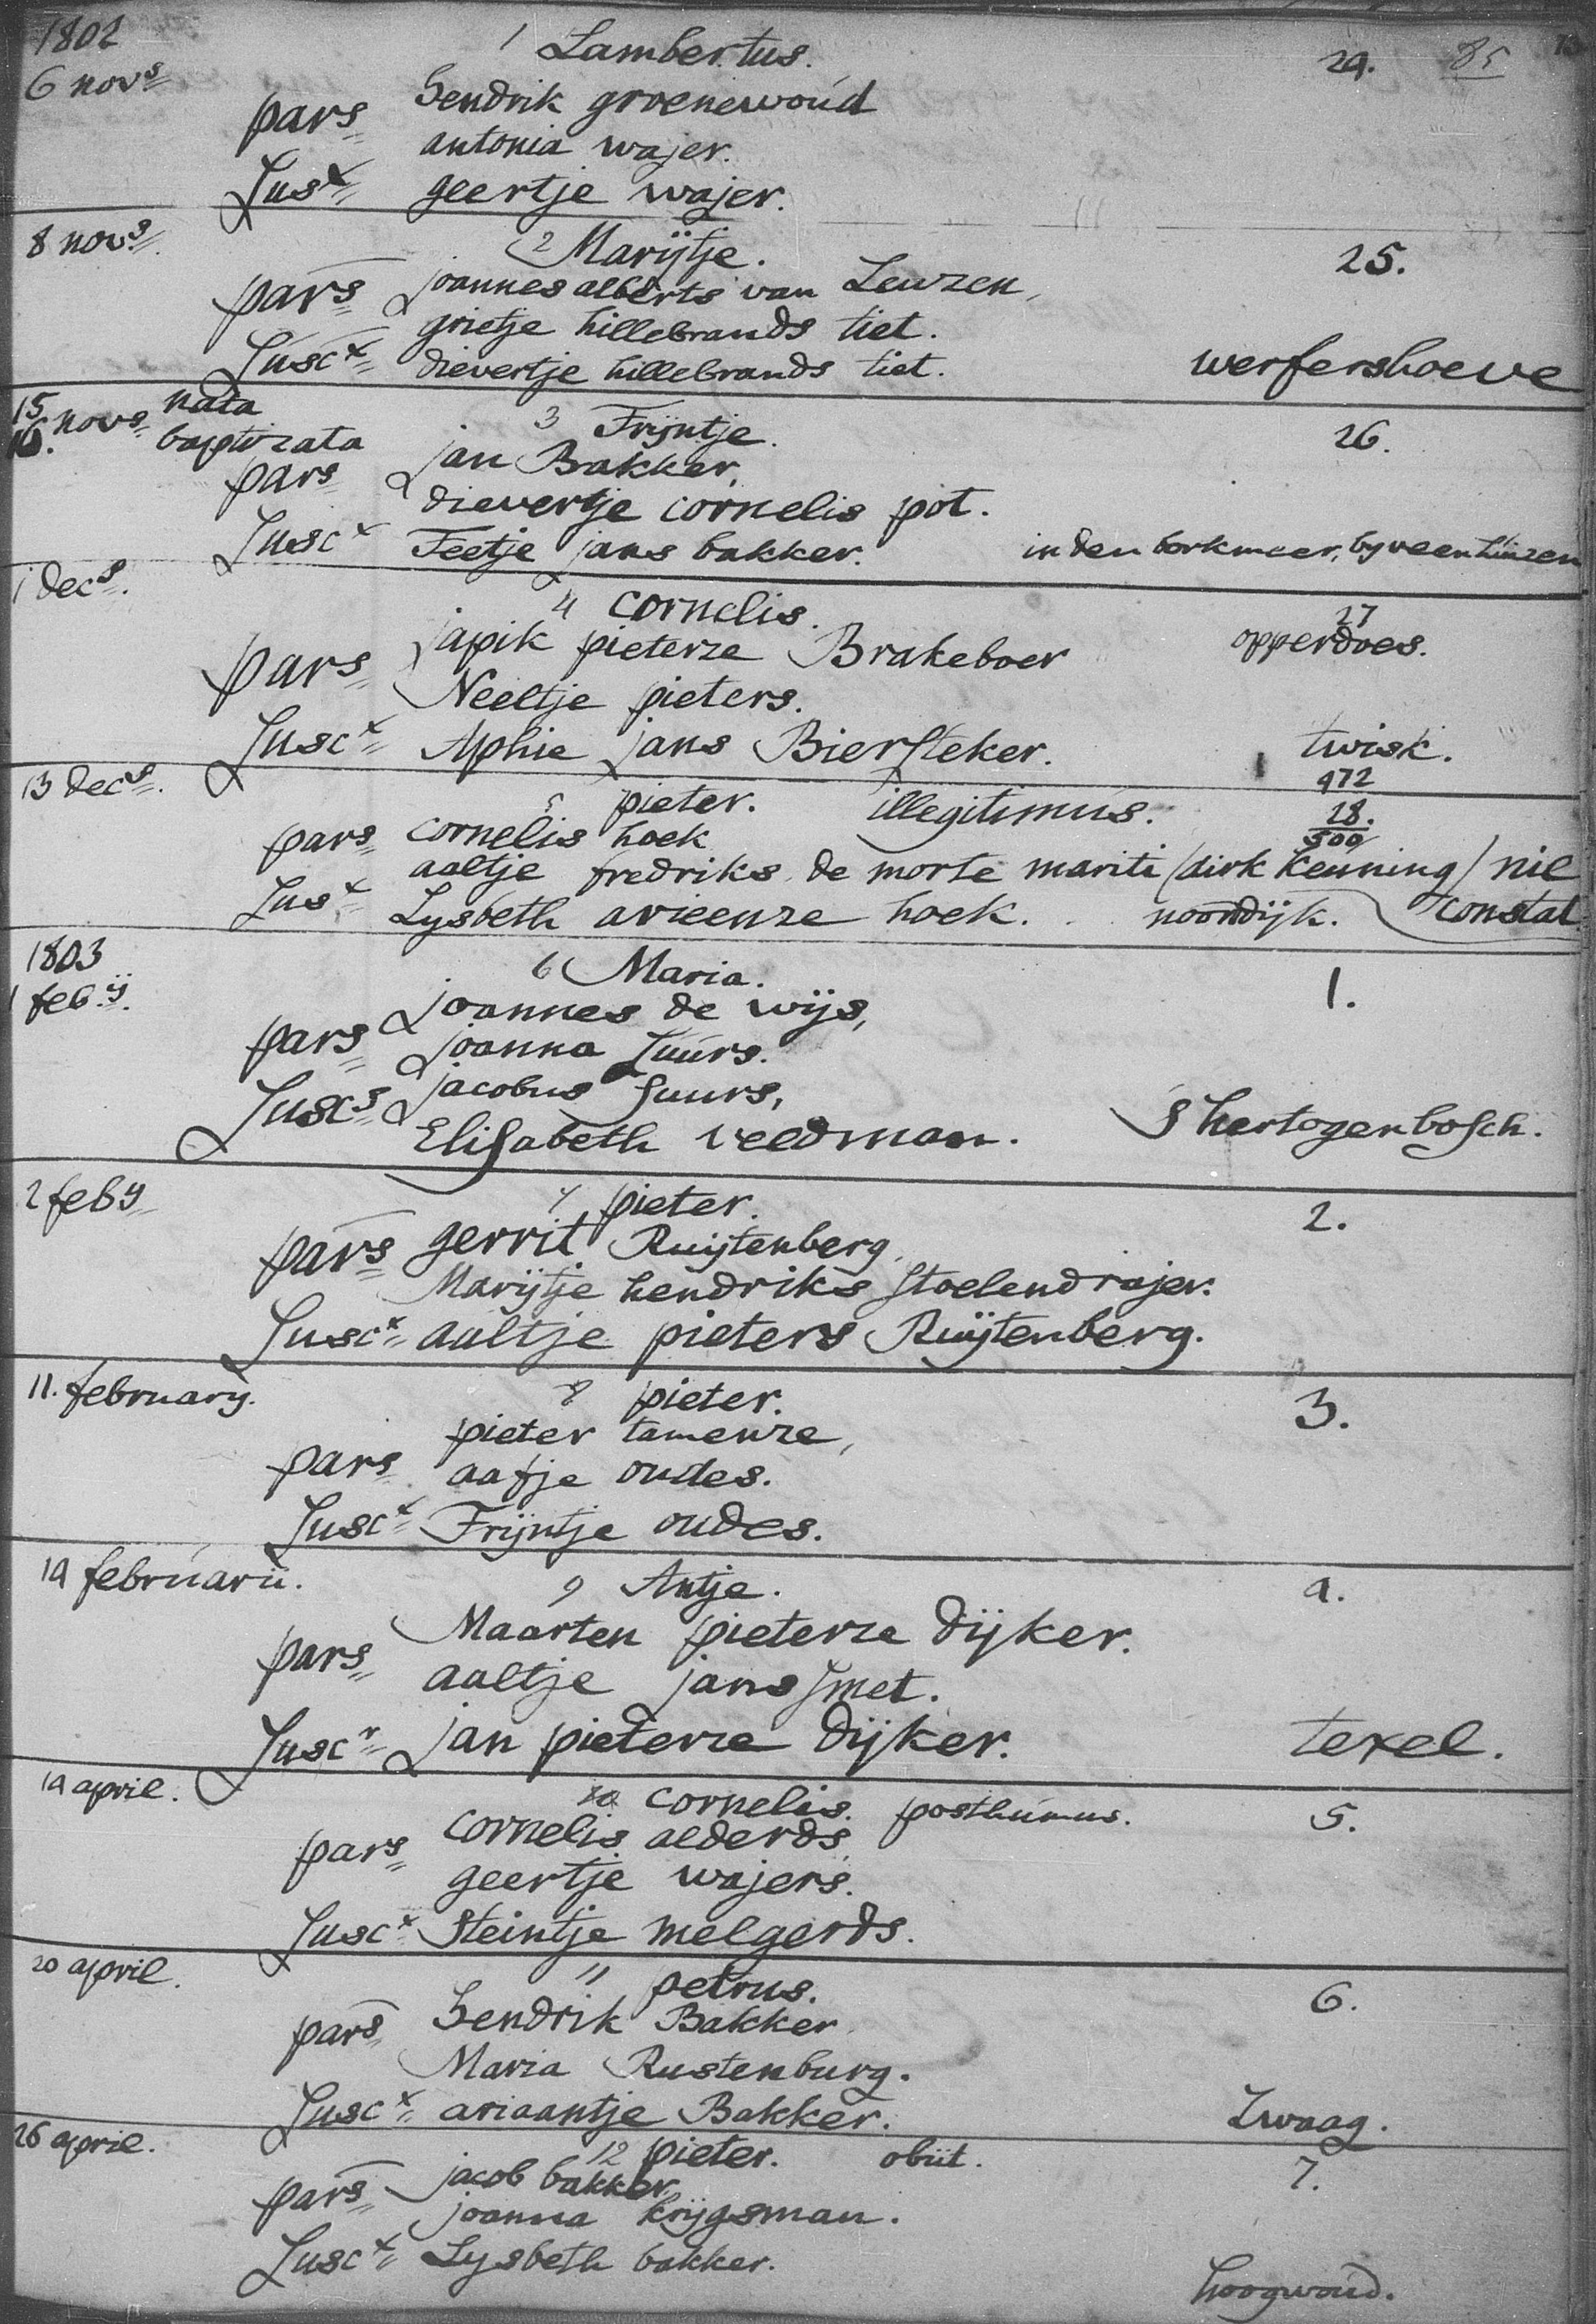 1802 1 Lambertus. 24. 85
6 novs
pars hendrik groenewoud
antonia wajer.
Susx geertje wajer.
8 novs. 2 Marijtje. 25.
pars joannes alberts van Leuzen,
grietje hillebrands tiet.
Suscx dievertje hillebrands tiet. werfershoeve
15 novs nata
16. baptizata 3 Trijntje. 26.
pars jan Bakker,
dievertje cornelis pot.
Suscx Feetje jans bakker. in den borkmeer, by veenhuizen
1 decs. 4 cornelis. 27
pars japik pieterze Brakeboer opperdoes.
Neeltje pieters.
Suscx Aphie jans Biersteker. twisk.
13 decs. 472
5 pieter. illegitimus. 28.
pars cornelis hoek 500
aaltje fredriks de morte mariti (dirk Keuning) nil
Susx Lysbeth arieenze hoek. noorddijk. constat
1803 6 Maria. 1.
1 feb.ij.
pars joannes de wijs,
joanna Suurs.
Suscs jacobus Suurs,
Elisabeth veldman. S hertogenbosch.
2 febij 7 pieter. 2.
pars gerrit Ruijtenberg,
Marijtje hendriks Stoelendrajer.
Suscx aaltje pieters Ruijtenberg.
11. february. 8 pieter. 3.
pars pieter tamenze,
aafje oudes.
Suscx Trijntje oudes.
14 februarii. 9 Antje. 4.
pars Maarten pieterze Dijker.
aaltje jans Smet.
Suscr jan pieterze Dijker. texel.
14 april. 10 cornelis. posthumus. 5.
pars cornelis alderds,
geertje wajers.
Suscx Steintje melgerds.
20 april. 11 petrus. 6.
pars hendrik Bakker
Maria Rustenburg.
Suscx ariaantje Bakker. Zwaag.
26 april. 12 pieter. obiit. 7.
pars jacob bakker,
joanna krijgsman.
Suscx Lysbeth bakker.
hoogwoud.